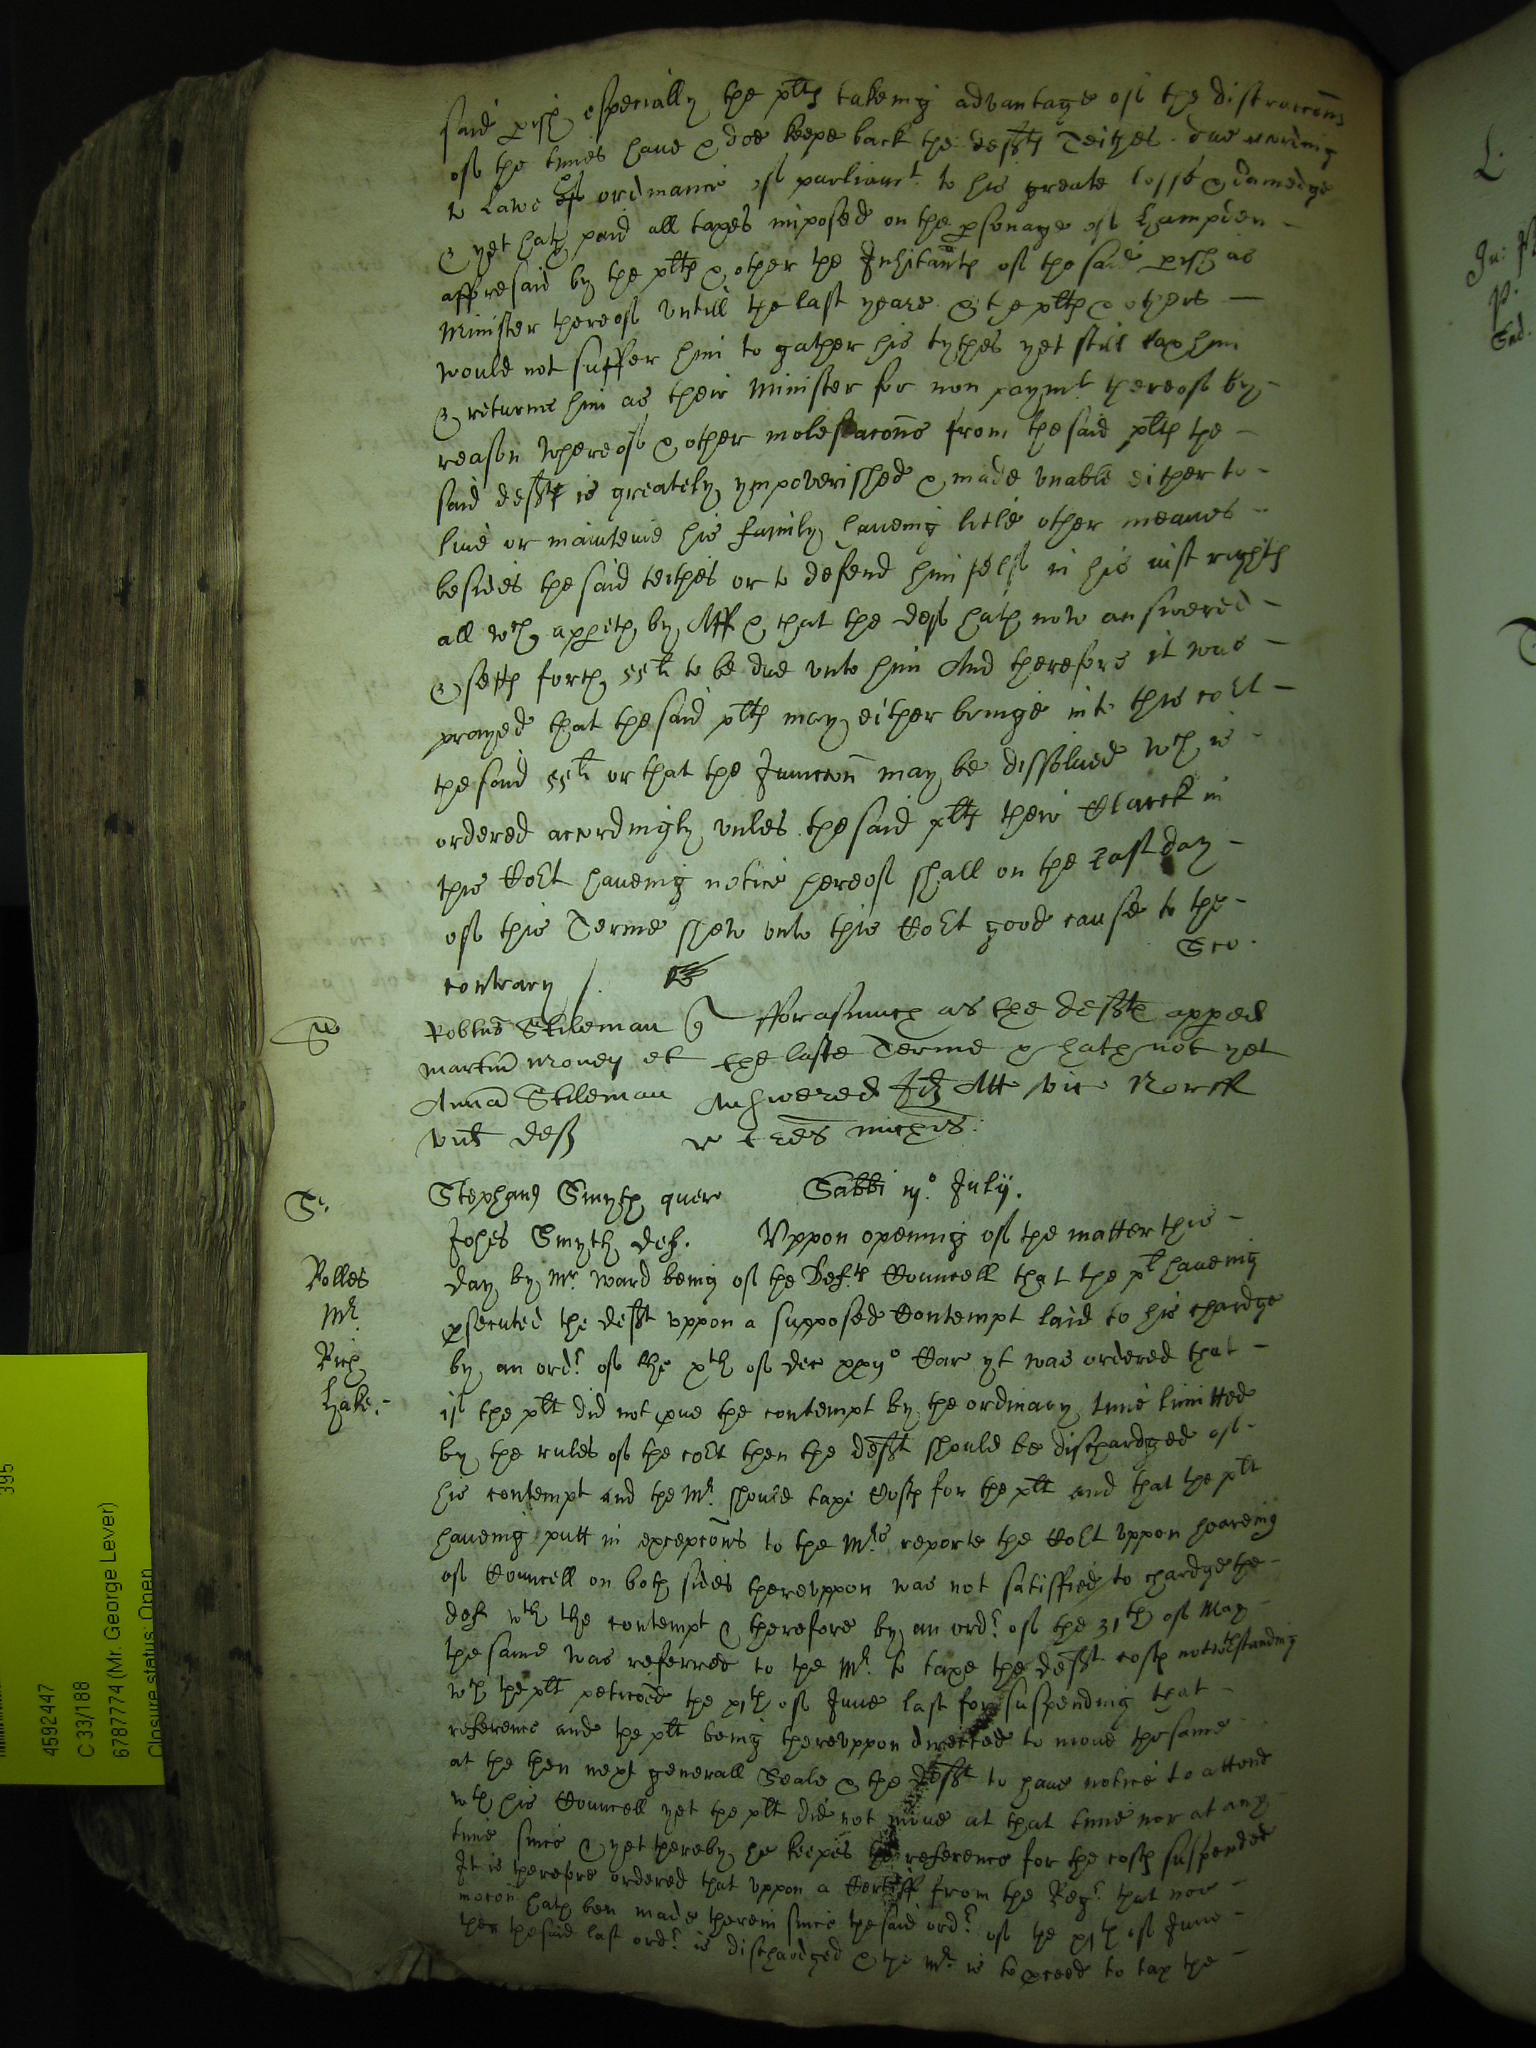 said pish especially the plts takeing advantage of the distraccons
of the times have & doe keepe back the defts Teithes due
to Lawe & ordinance of parliamt to his greate losse & damedge
& yet hath paid all taxes imposed on the psonage of Hampden
afforesaid by the plts & other the Inhitants of the said pish as
Minister thereof untill the last yeare & the plts & others
would not suffer him to gather his tythes yet still tax him
& returne him as their Minister for non paymt thereof by
reason whereof & other molestacons from the said plts the
said deft is greately ympoverished & made unable either to
live or mainteine his family haveing litle other meanes
besides the said teithes or to defend himself in his iust rights
all wch appeth by Aff & that the deft hath now answered
& setts forth 55li to be due unto him And therefore it was
prayed that the said plts may either bringe into this cort
the said 55li or that the Iniuncon may be dissolved wch is
ordered accordingly unles the said plts their Clarck in
this Cort haveing notice hereof shall on the last day
of this Terme shew unto this Cort good cause to the
contrary /.
Robtus Stileman q forasmuch as the defts apped
Martin Money et the laste Terme & hath not yet
Anna Stileman Answered Att vic Norff
Stephans Smyth quer Sabbi Julij.
Johes Smyth def. Uppon opening of the matter this
Rolles
Mr
Rich
Hake.
day by Mr Ward being of the Defts Councell that the plt haveing
psecuted the deft uppon a supposed Contempt laid to his chardge
by an ordr of the xth of Dec Car yt was ordered that
if the plt did not pve the contempt by the ordinary time limitted
by the rules of the cort then the deft should be dischardged of
his contempt and the Mr should taxe Costs for the plt and that the plt
haveing putt in excepcons to the Mrs reporte the Cort uppon heareing
of Councell on both sides thereuppon was not satisfied to chardge the
deft wth the contempt & therefore by an ordr of the 31th of May
the same was referred to the Mr to taxe the defts costs notwthstanding
wch the plt peticoned the xjth of June last for suspending that
reference and the plt being thereuppon directed to move the same
at the then next generall Seale & the deft to have notice to attend
wth his Councell yet the plt did not move at that time nor at any
time since & yet thereby he keepes the reference for the costs suspended
It is therefore ordered that uppon a Certiff from the Regr that noe
mocon hath ben made therein since the said ordr of the xjth of June
then the said last ordr is dischardged & the Mr is to pceed to tax the
395
4592447
C 33/188
6787774 (Mr. George Lever)
Closure status: Open